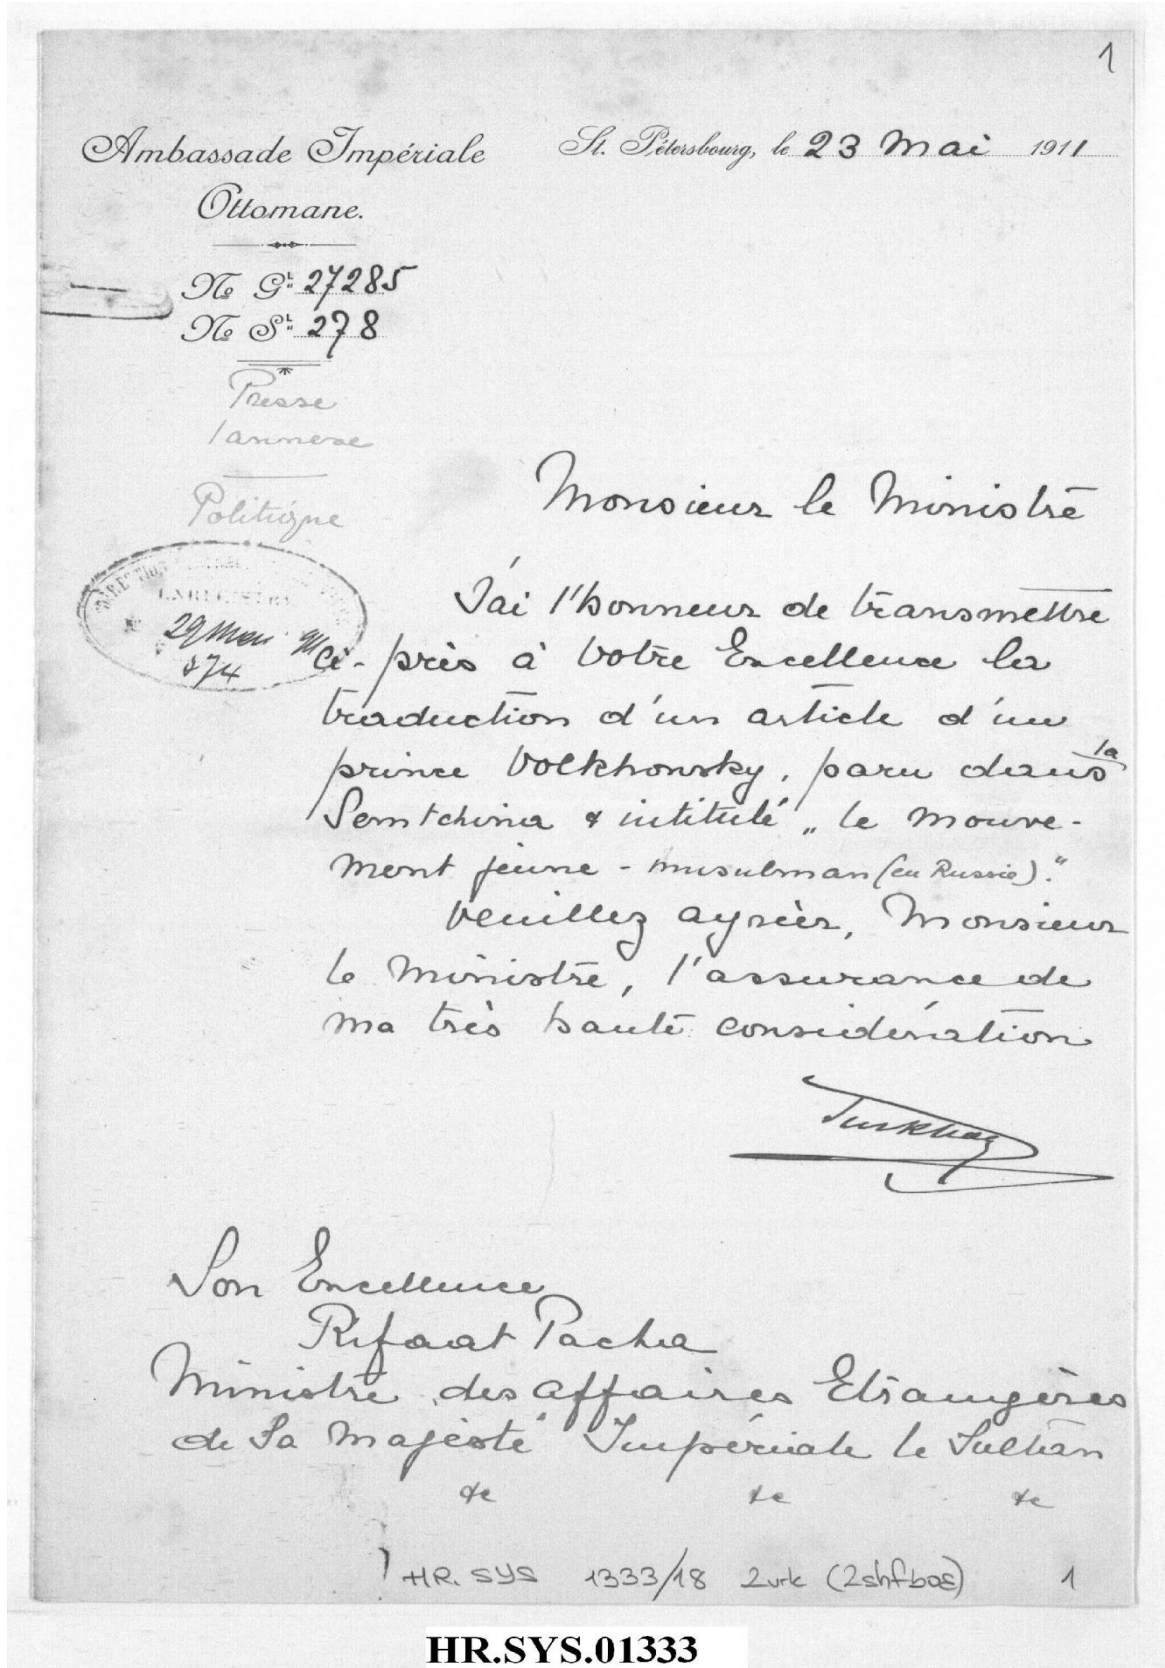 1
Ambassade Impériale
Ottomane.
St. Pétersbourg, le 23 Mai 1911
No Gl. 27285
No Sl. 278
Presse
1 annexe
Politique
ENREGISTRÉ
29 Mai
374
Monsieur le Ministre
J'ai l'honneur de transmettre
ci-près à Votre Excellence la
traduction d'un article d'un
prince Volkhonsky, paru dans la
Semtchina & intitulé „le mouve-
ment jeune-musulman (en Russie)."
Veuillez agréer, Monsieur
le Ministre, l'assurance de
ma très haute considération
Turkhan
Son Excellence
Rifaat Pacha
Ministre des affaires Etrangères
de Sa Majesté Impériale le Sultan
&c &c &c
HR. SYS 1333/18 2vrk (2shfboş) 1
HR.SYS.01333